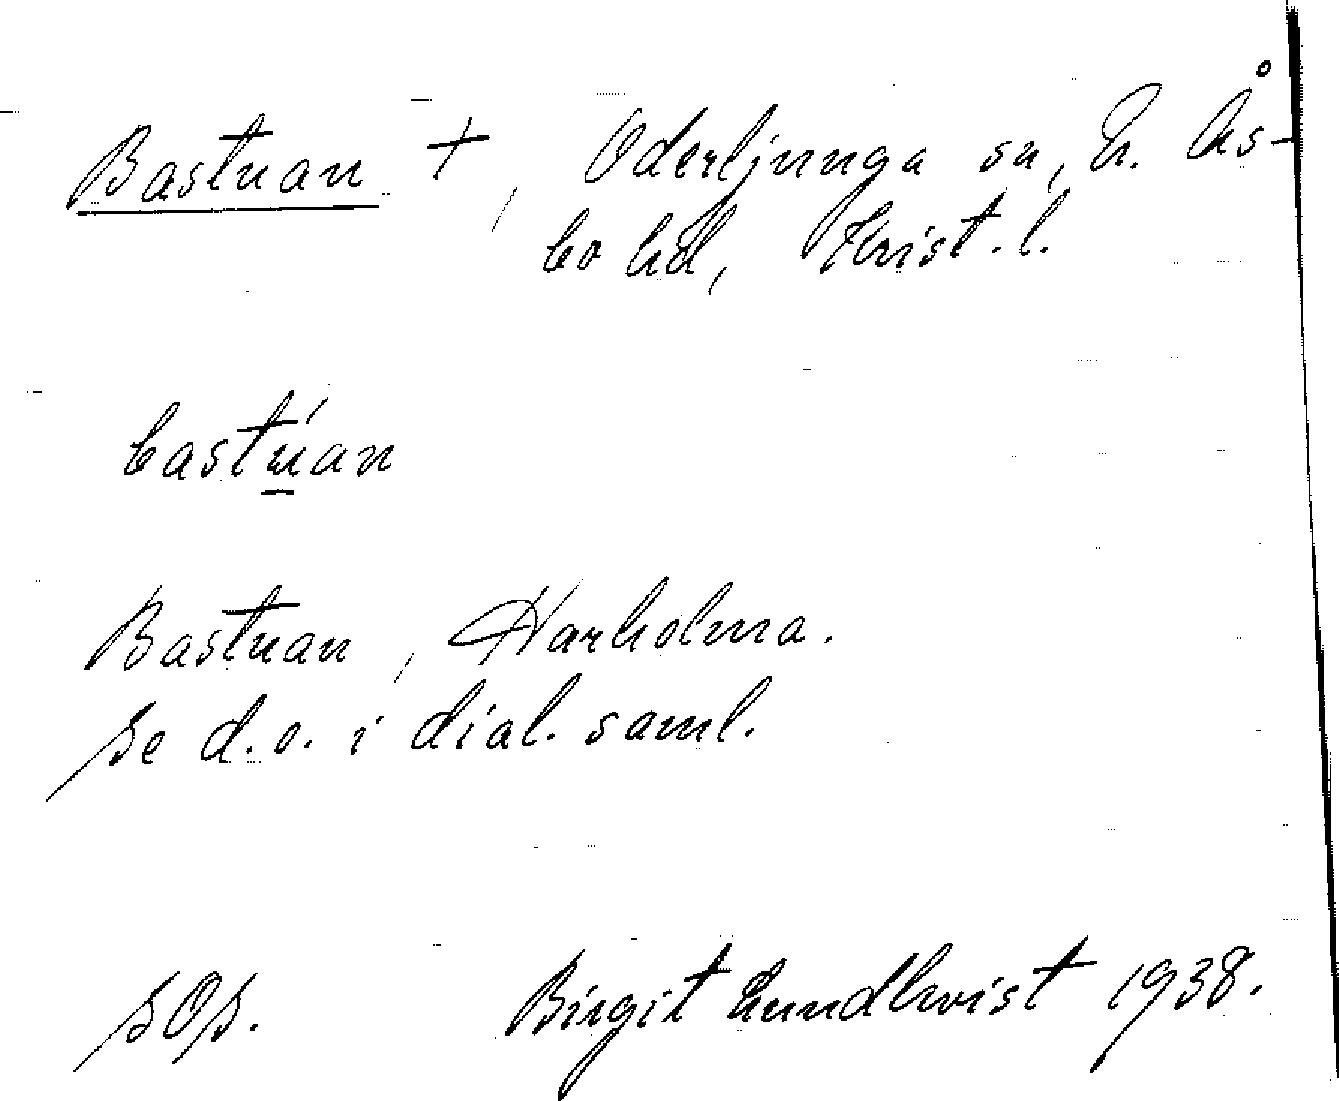 Bastuan +, Oderljunga sn, N. Ås-
bo hd, Krist. l.
bastúan
Bastuan, Harholma.
Se d.o. i dial. saml.
SOS. Birgit Lundkvist 1938.